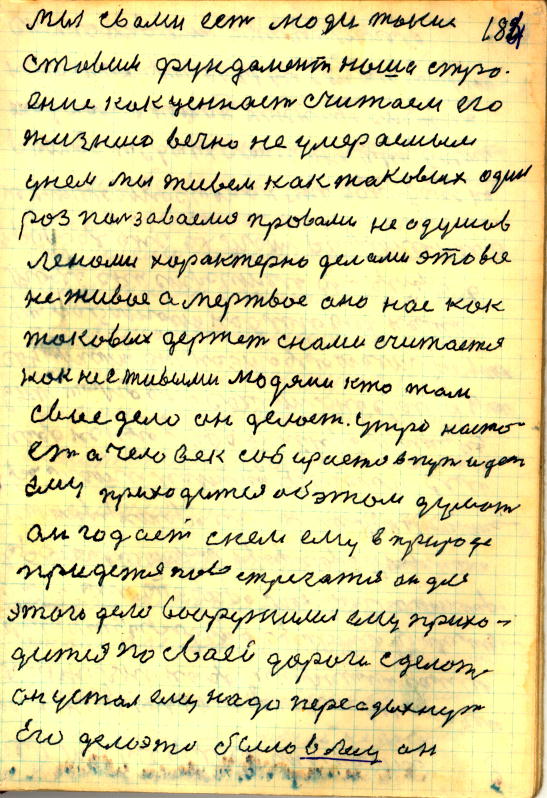 мы свами ест люди такие 184
ставим фундамент наша стро-
ение как ценнаст считаем его
жизнию вечно не умераемым
унем мы живем как таковых один
роз ползаваемся провами не одушов
леноми характерно делами это все
не живое а мертвое оно нас как
таковых держет снами считается
как нес живыми людями кто там
свае дело он делает. утро насто-
ет а человек собираетс в пут идет
ему приходится об этом думат
он годает скем ему в природе
придется повстречатся он для
этого дело вооружился ему прихо-
дится по сваей дороги сделат
он устал ему надо переодыхнут
Его дело это было в лису он